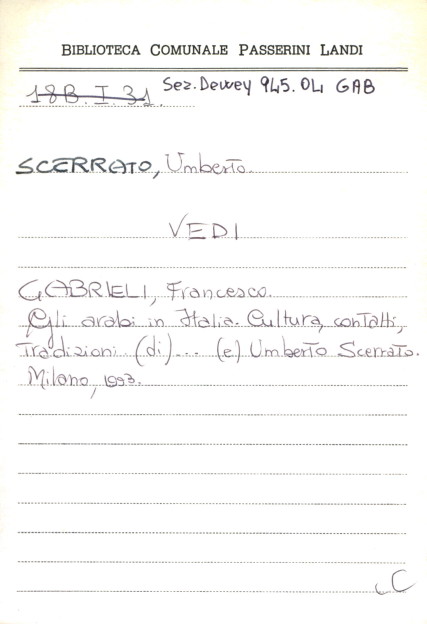 BIBLIOTECA COMUNALE PASSERINI LANDI
18B. I. 31. Sez. Dewey 945.04 GAB
SCERRATO, Umberto.
VEDI
GABRIELI, Francesco.
Gli arabi in Italia. Cultura, contatti,
Tradizioni (di)... (e) Umberto Scerrato.
Milano, 1993.
C